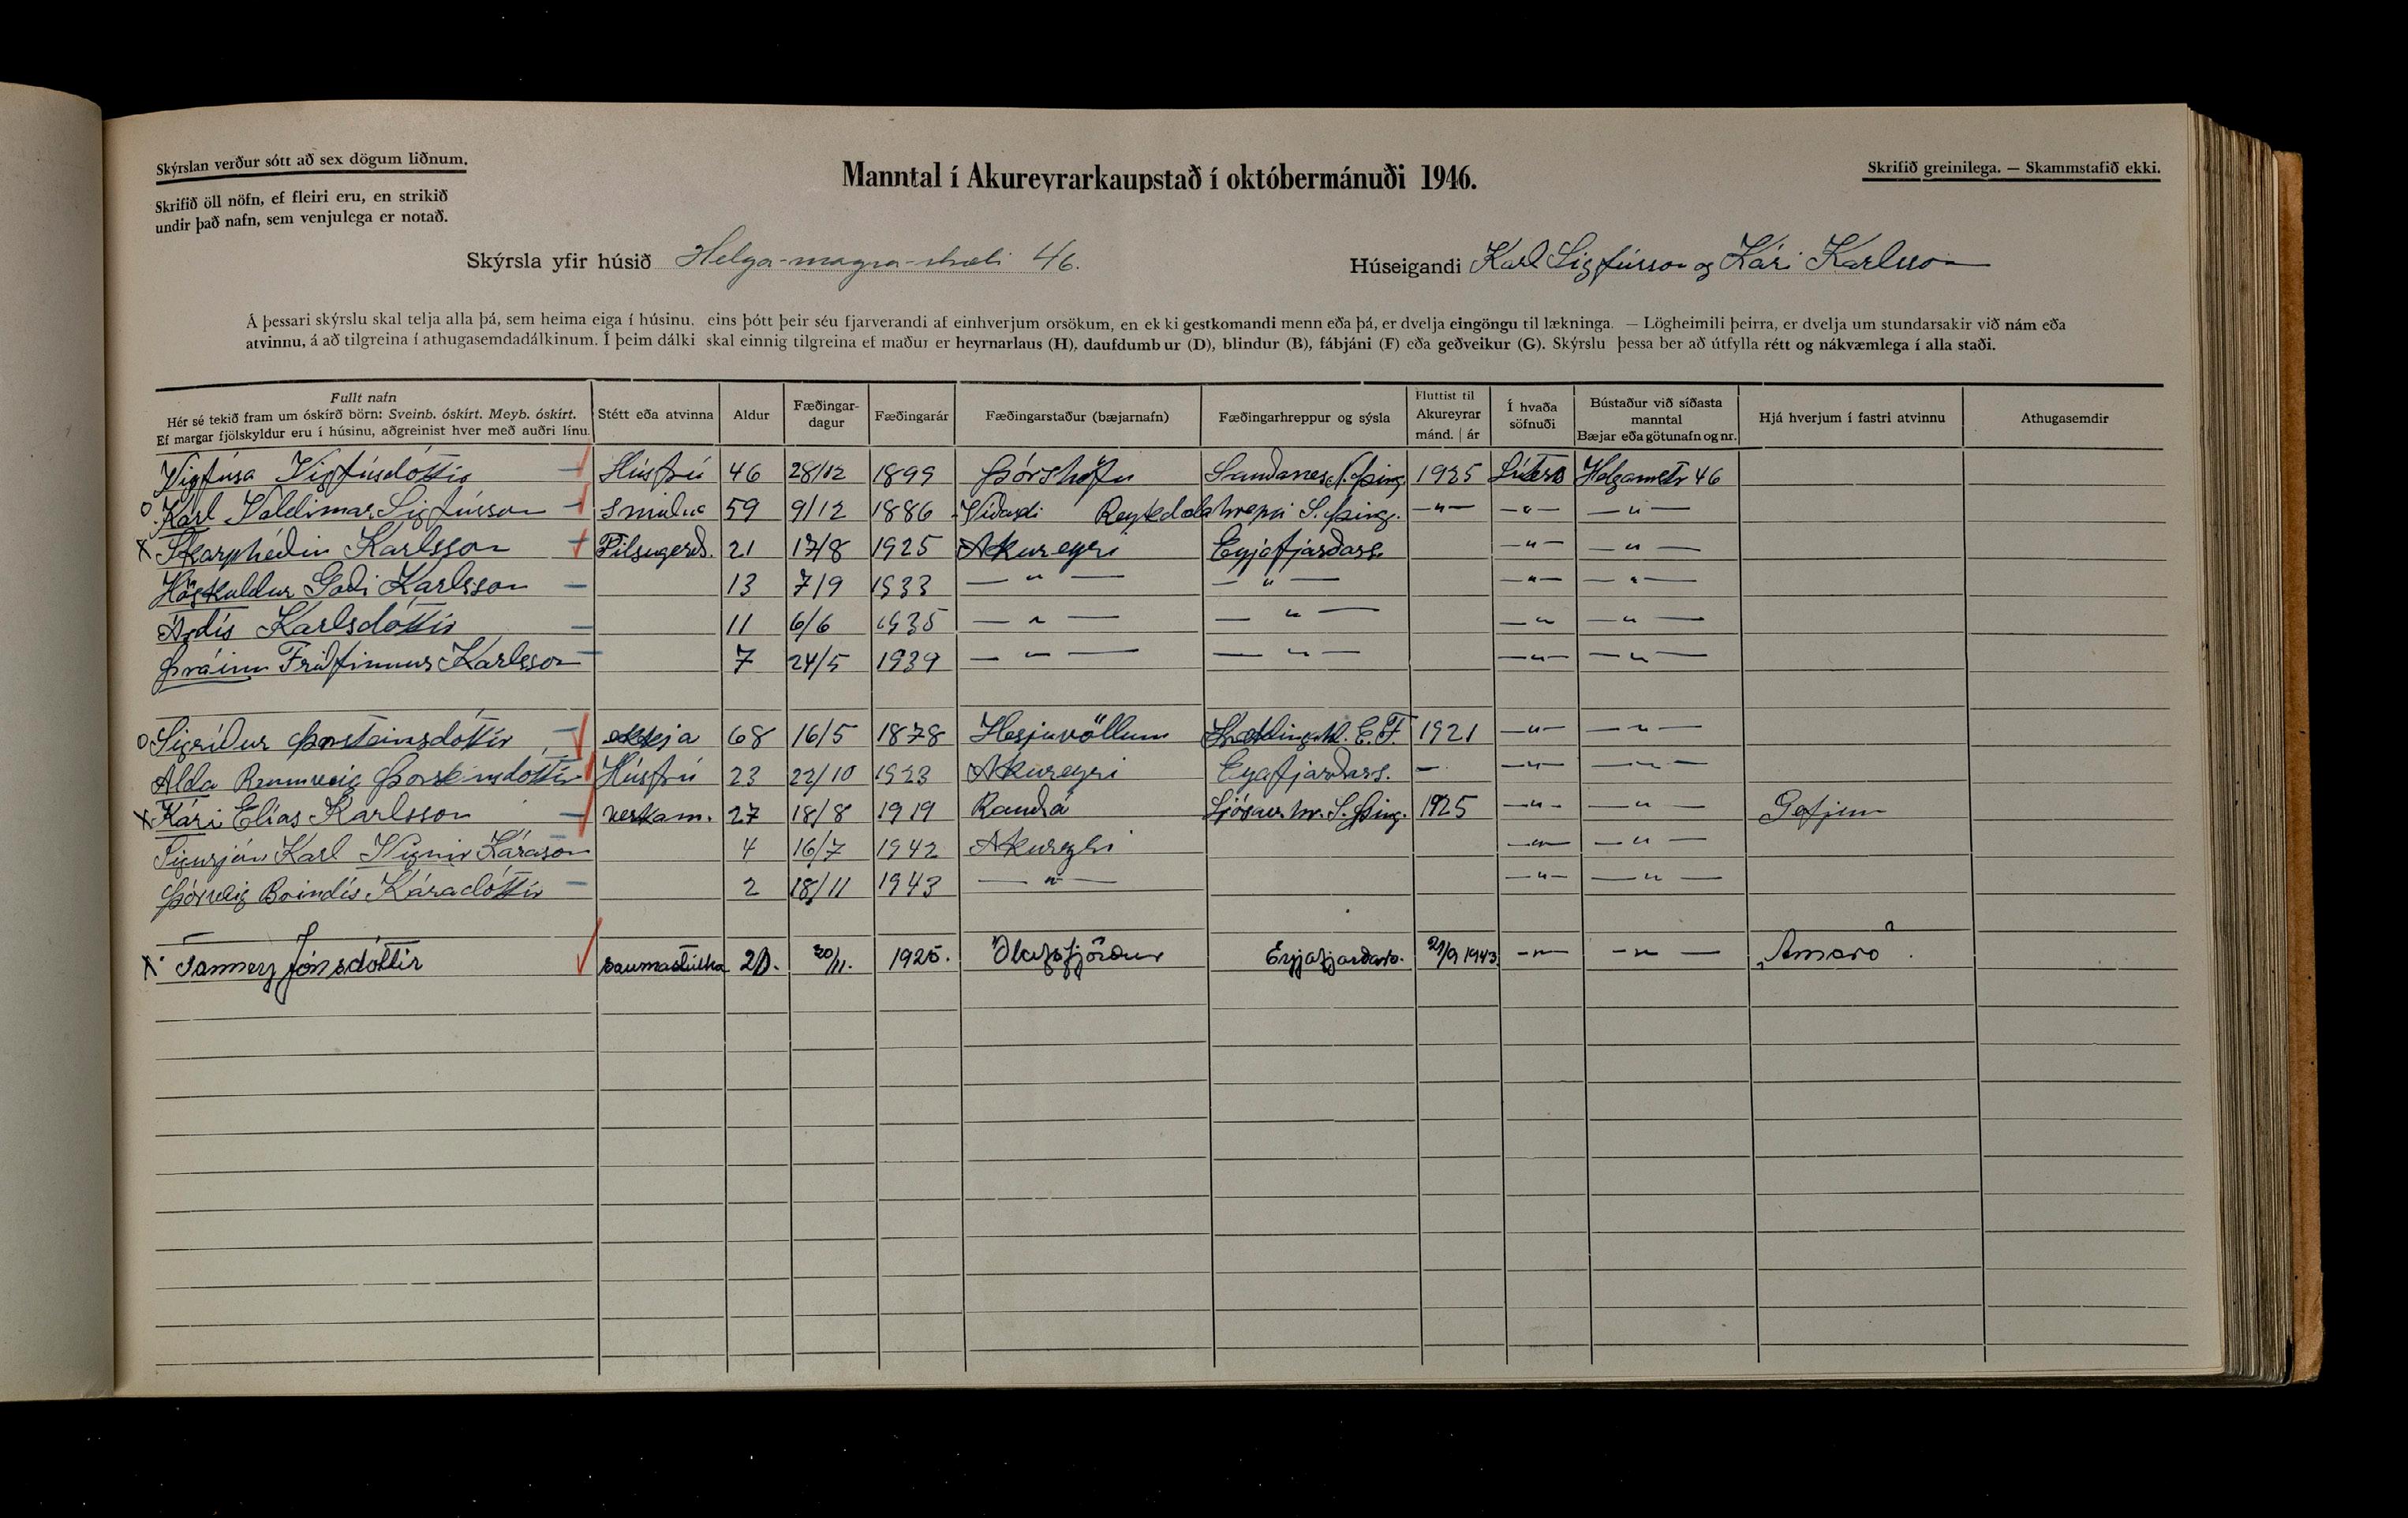 Skýrslan verður sótt að sex dögum liðnum.
Skrifið öll nöfn, ef fleiri eru, en strikið
undir það nafn, sem venjulega er notað.
Manntal í Akureyrarkaupstað í októbermánuði 1946.
Skrifið greinilega. — Skammstafið ekki.
Skýrsla yfir húsið Helga-magra-stræti 46.
Húseigandi Karl Sigfússon og Kári Karlsson
Á þessari skýrslu skal telja alla þá, sem heima eiga í húsinu, eins þótt þeir séu fjarverandi af einhverjum orsökum, en ekki gestkomandi menn eða þá, er dvelja eingöngu til lækninga. — Lögheimili þeirra, er dvelja um stundarsakir við nám eða
atvinnu, á að tilgreina í athugasemdadálkinum. Í þeim dálki skal einnig tilgreina ef maður er heyrnarlaus (H), daufdumbur (D), blindur (B), fábjáni (F) eða geðveikur (G). Skýrslu þessa ber að útfylla rétt og nákvæmlega í alla staði.
Fullt nafn
Hér sé tekið fram um óskírð börn: Sveinb. óskírt. Meyb. óskírt.
Ef margar fjölskyldur eru í húsinu, aðgreinist hver með auðri línu.
Stétt eða atvinna
Aldur
Fæðingar-
dagur
Fæðingarár
Fæðingarstaður (bæjarnafn)
Fæðingarhreppur og sýsla
Fluttist til
Akureyrar
mánd. | ár
Í hvaða
söfnuði
Bústaður við síðasta
manntal
Bæjar eða götunafn og nr.
Hjá hverjum í fastri atvinnu
Athugasemdir
Vigfúsa Vigfúsdóttir Húsfrú 46 28/12 1899 Þórshöfn Sauðanes N. Þing 1925 Lúters Helgamstr 46
o Karl Valdimar Sigfússon Smiður 59 9/12 1886 Víðaseli Reykdælahreppi S. Þing. —"— —"— —"—
x Skarphéðin Karlsson Pilsugerð. 21 17/8 1925 Akureyri Eyjafjarðars. —"— —"—
Höskuldur Goði Karlsson 13 7/9 1933 —"— —"— —"— —"—
Ardís Karlsdóttir 11 6/6 1935 —"— —"— —"— —"—
Þráinn Friðfinnur Karlsson 7 24/5 1939 —"— —"— —"— —"—
o Sigríður Þorsteinsdóttir ekkja 68 16/5 1878 Hesjuvöllum 1921 —"— —"—
Alda Rannveig Þorsteinsdóttir Húsfrú 23 22/10 1923 Akureyri Eyafjarðars. — —"— —"—
x Kári Elías Karlsson verkam. 27 18/8 1919 Rauðá Ljósav.hr. S. Þing. 1925 —"— —"— Gefjun
Sigurjón Karl Vignir Kárason 4 16/7 1942 Akureyri —"— —"—
Þórveig Bryndís Káradóttir 2 18/11 1943 —"— —"— —"—
x Fanney Jónsdóttir saumastúlka 20. 30/11. 1925. Ólafsfjörður Eyjafjarðars. 21/9 1943 —"— —"— Amaro